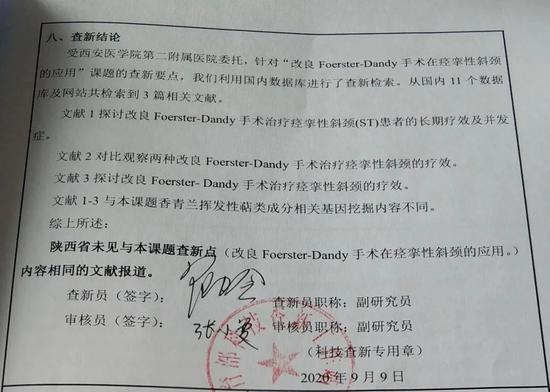 八、查新结论
受西安医学院第二附属医院委托，针对“改良 Foerster-Dandy 手术在痉挛性斜颈
的应用”课题的查新要点，我们利用国内数据库进行了查新检索。从国内 11 个数据
库及网站共检索到 3 篇相关文献。
文献 1 探讨改良 Foerster-Dandy 手术治疗痉挛性斜颈(ST)患者的长期疗效及并发
症。
文献 2 对比观察两种改良 Foerster-Dandy 手术治疗痉挛性斜颈的疗效。
文献 3 探讨改良 Foerster- Dandy 手术治疗痉挛性斜颈的疗效。
文献 1-3 与本课题香青兰挥发性萜类成分相关基因挖掘内容不同。
综上所述：
陕西省未见与本课题查新点（改良 Foerster-Dandy 手术在痉挛性斜颈的应用。）
内容相同的文献报道。
查新员（签字）： 查新员职称：副研究员
审核员（签字）： 审核员职称：副研究员
（科技查新专用章）
2020 年 9 月 9 日